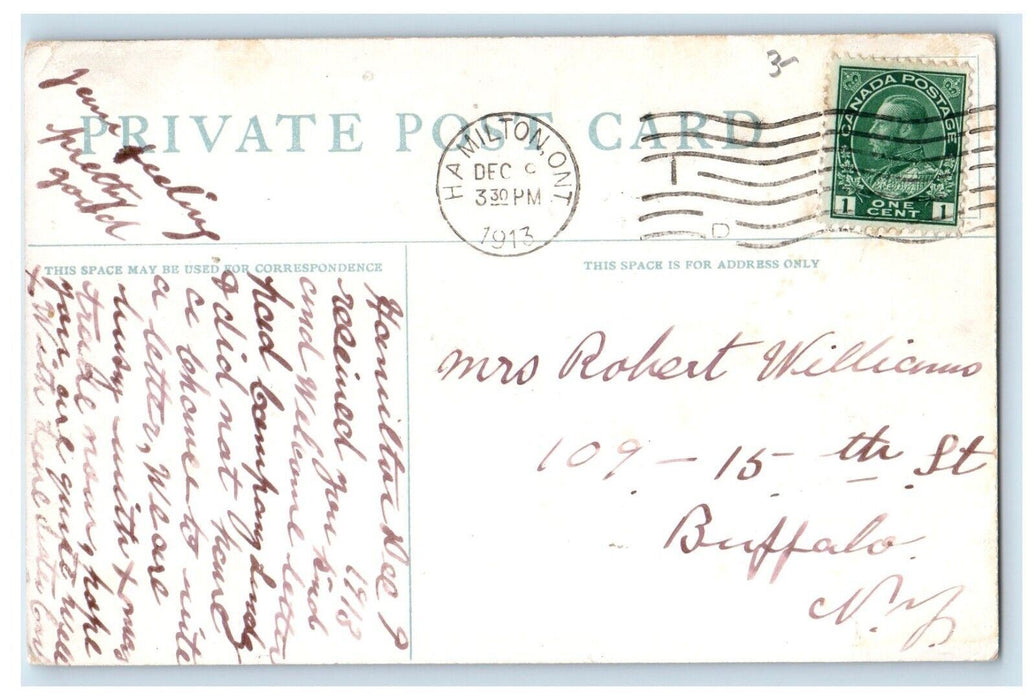 3-
PRIVATE POST CARD
HAMILTON, ONT
DEC 9
3 30 PM
1913
CANADA POSTAGE
1 ONE CENT 1
THIS SPACE MAY BE USED FOR CORRESPONDENCE
THIS SPACE IS FOR ADDRESS ONLY
Mrs Robert Williams
109 - 15 th St
Buffalo
N. Y
Hamilton Dec 9
1913
received you kind
and Welcome letter
had Company Sunday
I did not have
a chance to write
a letter, We are
busy with Xmas
trade now, hope
you are quite well
With Love
feeling
pretty
good